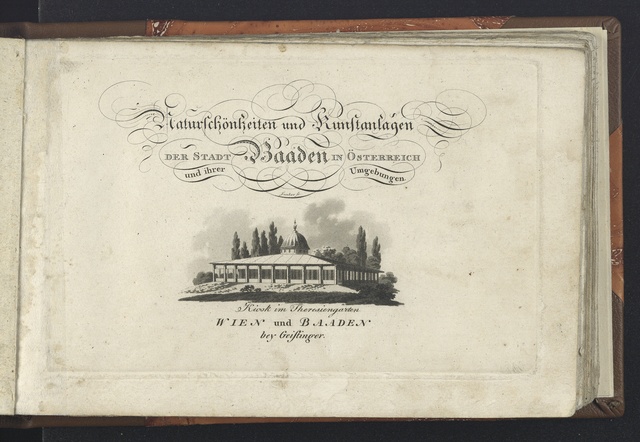 Naturschönheiten und Kunstanlagen
DER STADT Baaden IN ÖSTERREICH
und ihrer Umgebungen.
Kiosk im Theresiengarten
WIEN und BAADEN
bey Geistinger.